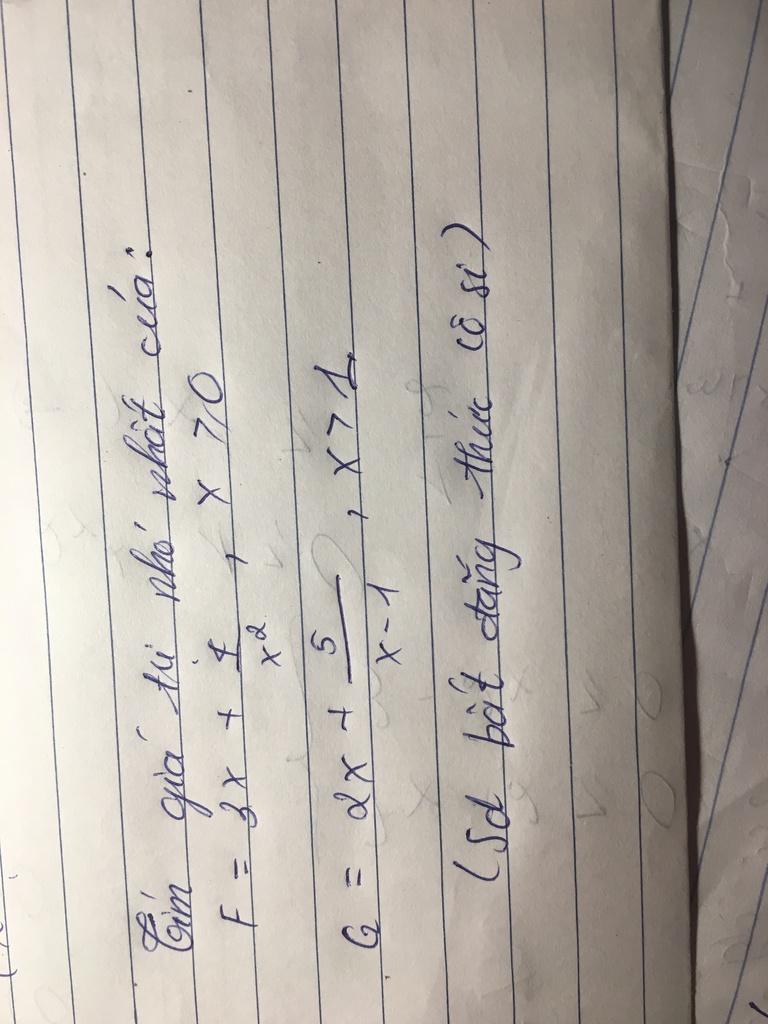 Tìm giá trị nhỏ nhất của:
F = 3x + 4/x², x > 0
G = 2x + 5/(x-1), x > 1
(Sd bất đẳng thức cô si)